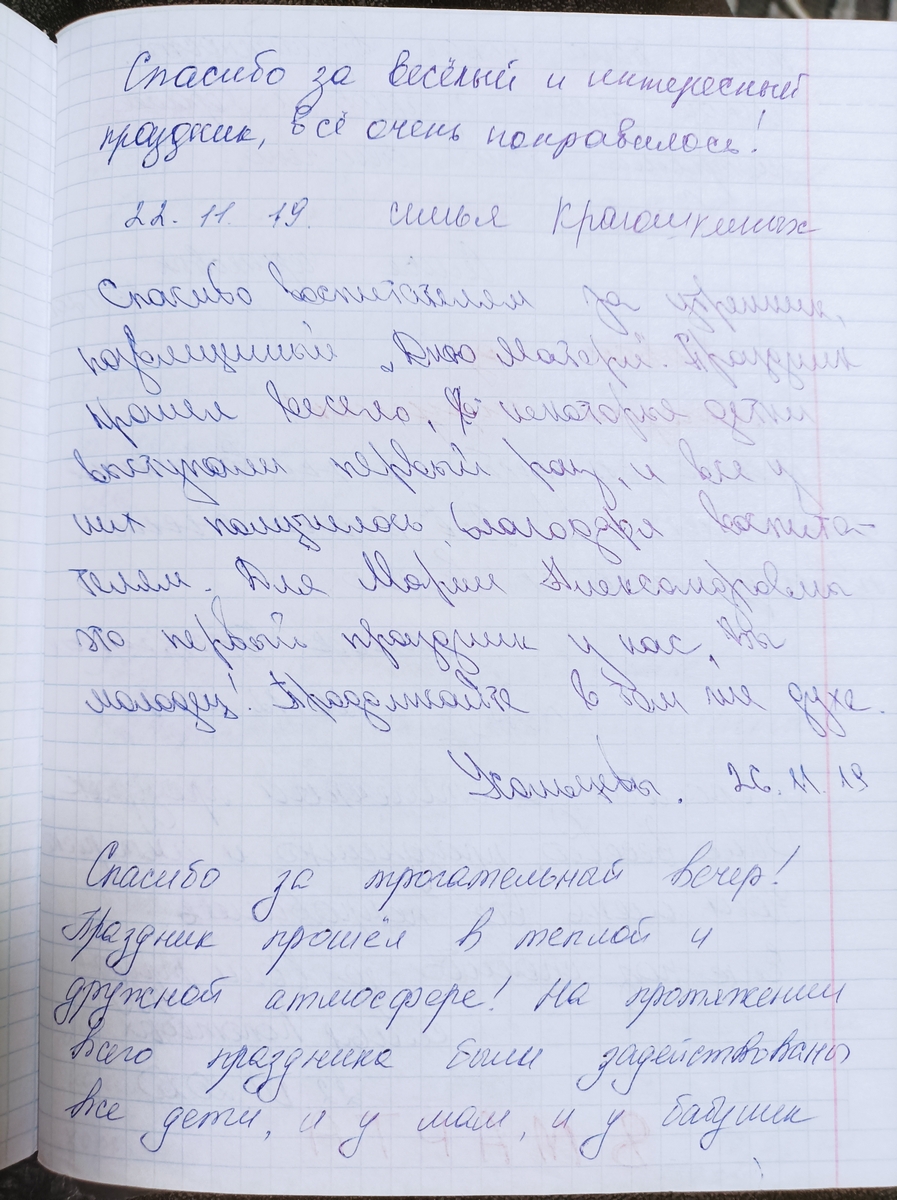 Спасибо за весёлый и интересный
праздник, всё очень понравилось!
22. 11 19. семья
Спасибо воспитателям за утренник,
посвященный „Дню Матери". Праздник
прошел весело, некоторые детки
выступали первый раз, и все у
них получилось благодаря воспита-
телям. Для Марии Александровны
это первый праздник у нас, Вы
молодец! Продолжайте в том же духе.
26. 11. 19
Спасибо за трогательный вечер!
Праздник прошёл в теплой и
дружной атмосфере! На протяжении
всего праздника были задействованы
все дети, и у мам, и у бабушек